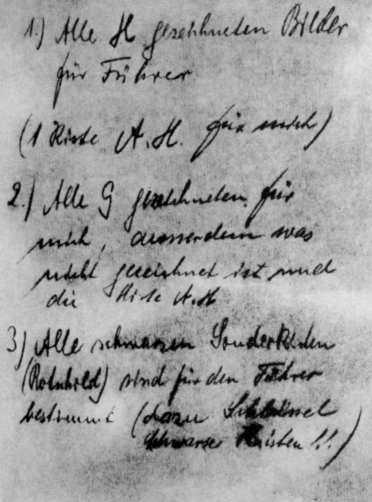 1.) Alle H gezeichneten Bilder
für Führer
(1 Kiste A.H. für mich)
2.) Alle G gezeichneten für
mich, ausserdem was
nicht gezeichnet ist und
die Kiste A.H
3) Alle schwarzen Sonderkisten
(Rothschild) sind für den Führer
bestimmt (dazu Schlüssel
schwarzer Kisten!!)